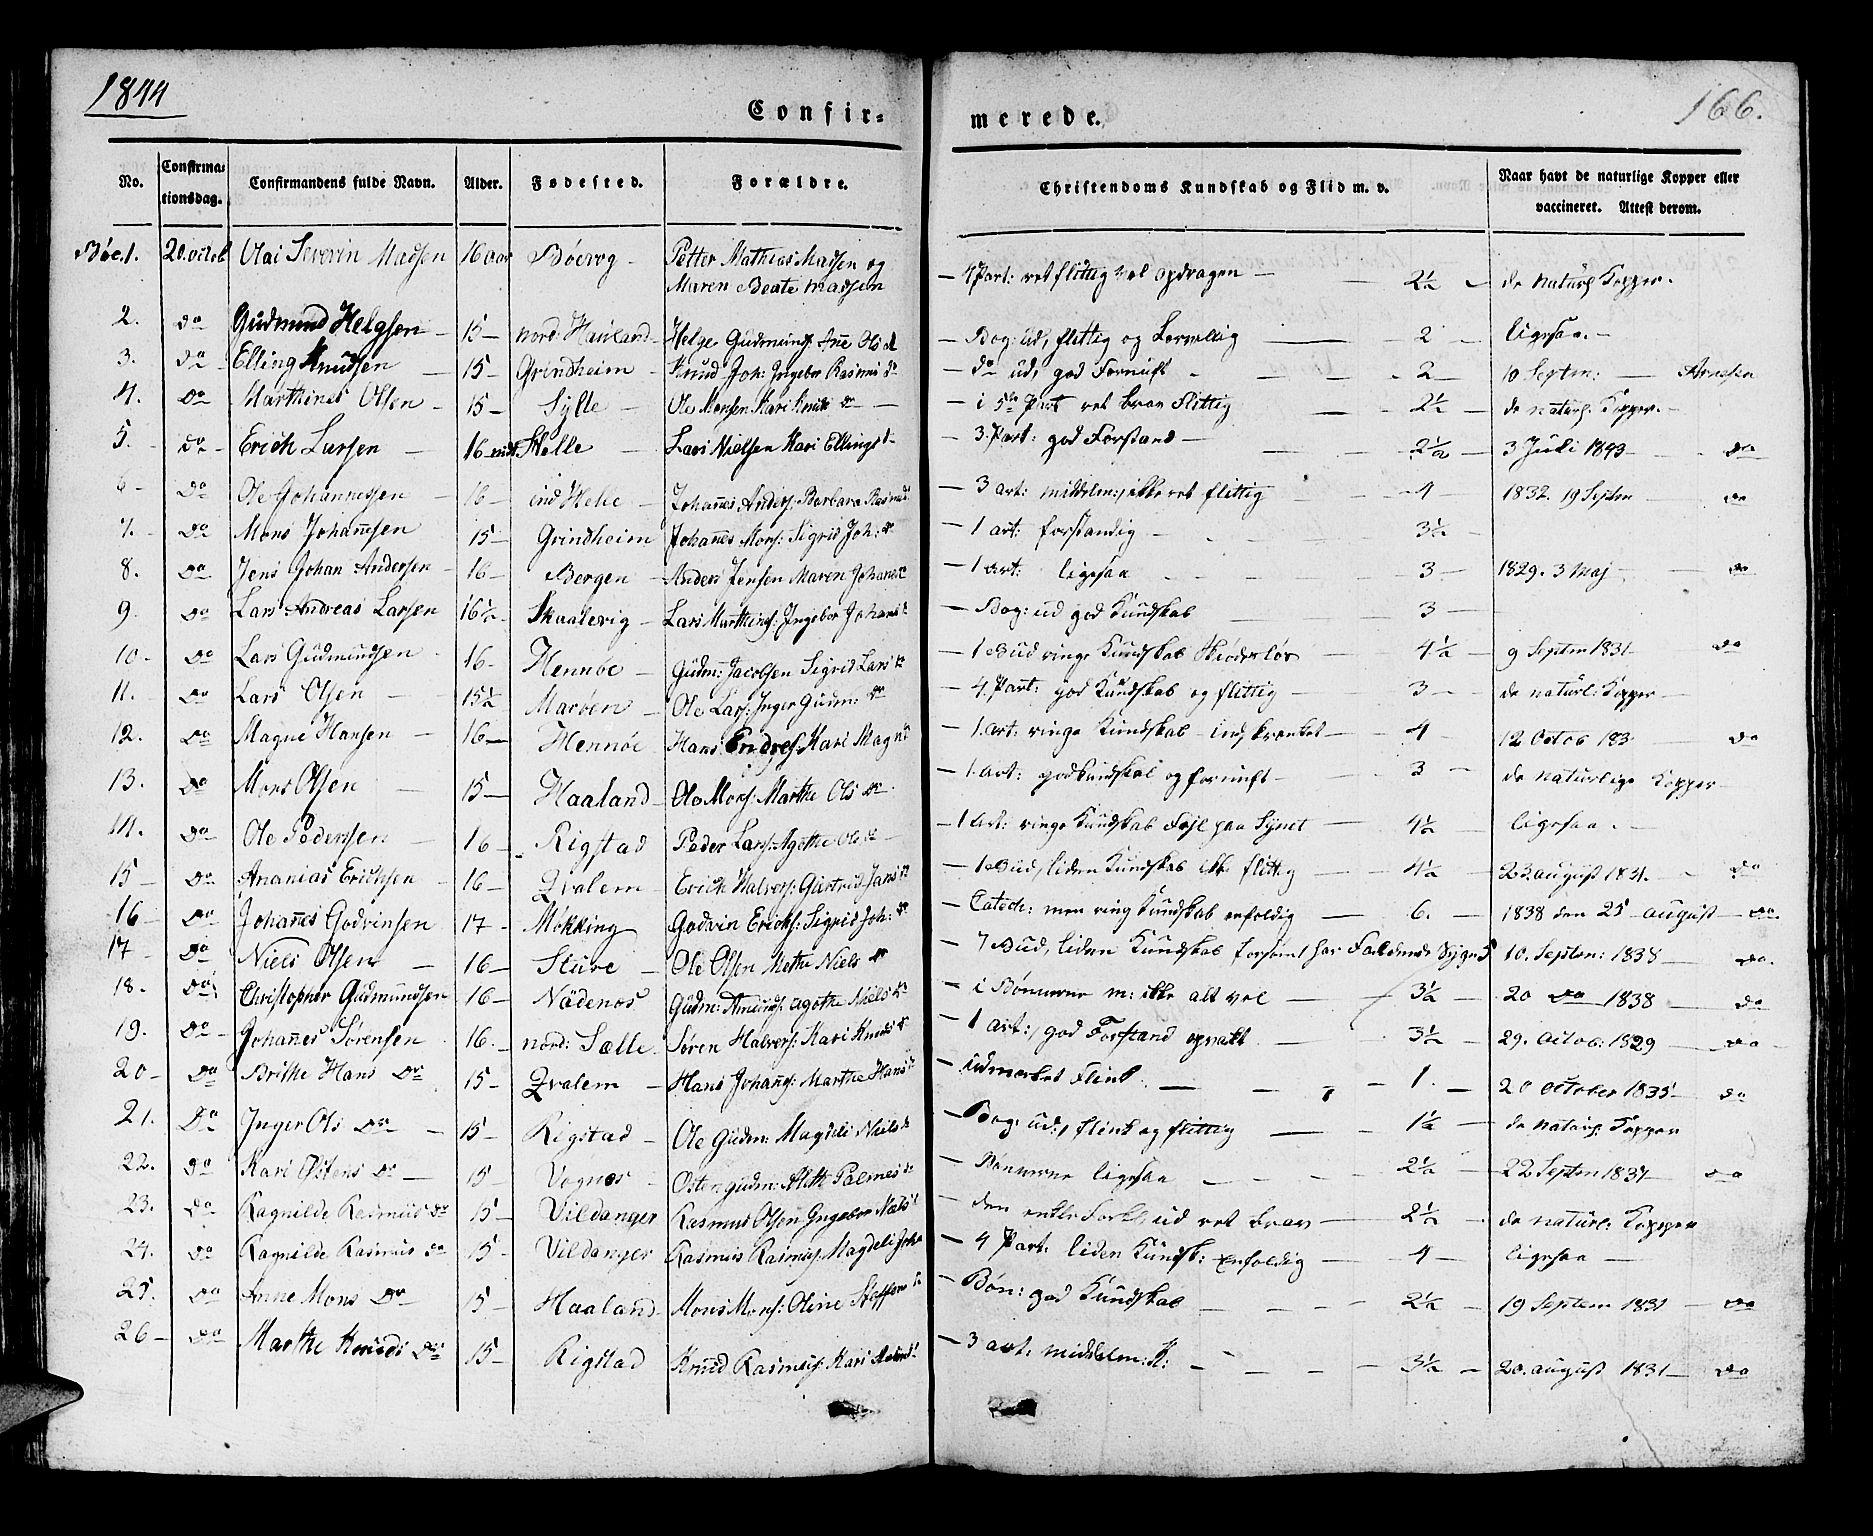 1844
166.
Confir-merede.
No. Confirmationsdag. Confirmandens fulde Navn. Alder. Fødested. Forældre. Christendoms Kundskab og Flid m. v. Naar havt de naturlige Kopper eller vaccineret. Attest derom.
Böe 1. 20. octob Olai Severin Madsen 16 aar Böevog - Petter Mathias Madsen og Maren Beate Madsen - 4 Part: ret flittig vel opdragen - 2½ - de naturl Kopper.
2. do Gudmund Helgsen - 15 - nord: Hauland - Helge Gudmunds: Ane Ols d - Bog: ud, flittig og - 2 - ligesaa. -
3. do - Elling Knudsen - 15 - Grindheim - Knud Joh: Ingebor Rasmus dr - do ud, god Fornuft - 2 - 10 Septem: - Arnesen
4. do Marthines Olsen - 15 - Sylte - Ole Monsen Kari Knuts dr - i 5te Part ret brav flittig - 2½ - de naturl. Kopper. -
5. do - Erich Larsen - 16 - Helle - Lars Nielsen Kari Ellings d - 3 Part: god Forstand - 2½ - 3 Juli 1843 - do
6 - do Ole Johannesen - 16 - ind Helle - Johanes Anders: Barbara Rasmus d - 3 art: middelm:, ikke ret flittig - 4 - 1832. 19 Septem - do
7. - do Mons Johanesen 15 - Grindheim Johanes Mons: Sigrid Joh: dr - 1 art: forstandig - 3½ -
8. do Jens Johan Andersen - 16 - Bergen - Anders Jensen Maren Johans dr - 1 art: ligesaa - 3 - 1829. 3 Maj - do
9. do Lars Andreas Larsen 16½ - Skaalevig - Lars Marthins: Ingebor Johans d - Bog: ud god Kundskab - 3 -
10 - do Lars Gudmundsen - 16 - Hennöe - Gudm: Jacobsen Sigrid Lars dr - 1 Bud ringe Kundskab - 4½ - 9 Septem 1831 - do
11. do Lars Olsen - 15½ Maröen - Ole Lars: Inger Gudm: dr - 4 Part: god Kundskab og flittig - 3 - de naturl: Kopper -
12. do Magne Hansen - 16 - Hennöe - Hans Endres: Kari Magns d - 1 art: ringe Kundskab - indskrænket - 4 - 12 Octob 183 - do
13. do Mons Olsen 15 - Haaland - Ole Mons: Marthe Ols dr - 1 art: god Kundskab og fornuft - 3 - de naturlige Kopper -
14. do - Ole Pedersen - 16 - Rigstad Peder Lars: Agethe Ols d - 1 art: ringe Kundskab Fejl paa Synet - 4½ - ligesaa. -
15 - do - Ananias Erichsen - 16 - Qvalem - Erich Halvers: Giertrud Jans dr - 1 Bud, liden Kundskab ikke flittig - 4½ - 23 august 1831. - do
16 - do Johanes Godvinsen 17 - Mökking Godvin Ericks: Sigrid Joh: dr - Catech: men ring Kundskab enfoldig - 6. - 1838 den 25 august - do.
17 - do Niels Olsen - 16 - Sture - Ole Olsen Methe Niels dr - 7 Bud, liden Kundskab forsömt har Faldende Syge 5 10. Septem: 1838 - do.
18. do Christopher Gudmundsen 16 - Nödenes Gudm: Amunds: Agothe Niels dr - i Bönnerne m: ikke alt vel - 3½ - 20 do 1838 - do
19. do - Johanes Sörensen 16. - nord: Sælle. Sören Halvers: Kari Knuds d - 1 art:, god Forstand - 3½ - 29. octob: 1829 - do -
20 - do Brithe Hans dr 15 - Qvalem - Hans Johans: Marthe Hans d - udmærket Flink. - 1. - 20 october 1835 - do
21. do Inger Ols dr - 15 - Rigstad - Ole Gudm: Magdeli Niels d - Bog: ud:, flink og flittig - 1½ - de naturl: Kopper
22. do Kari Östens dr - 15 - Vognes - Osten Gudm: Alith Palmes d - Bönnerne ligesaa - 2½ - 22 Septem 1837 - do
23. do Ragnilde Rasmus dr 15 - Vildanger Rasmus Olsen Ingebor Niels d - den Forkl, ud ret brav - 2½ - de naturl: Kopper
24. do Ragnilde Rasmus dr 15 - Vildanger Rasmus Rasmus: Magdeli Joh d - 4 Part: liden Kundsk: Enfoldig - 4 - ligesaa -
25. do Anne Mons dr - 15 - Haaland - Mons Mons: Oline Steffens d - Bön: god Kundskab - 2½ - 19 Septem 1831 - do
26 - do Marthe Knuds dr 15 - Rigstad Knud Rasmus: Kari d - 3 art: middelm: K: - 3½ - 20. august 1831 - do